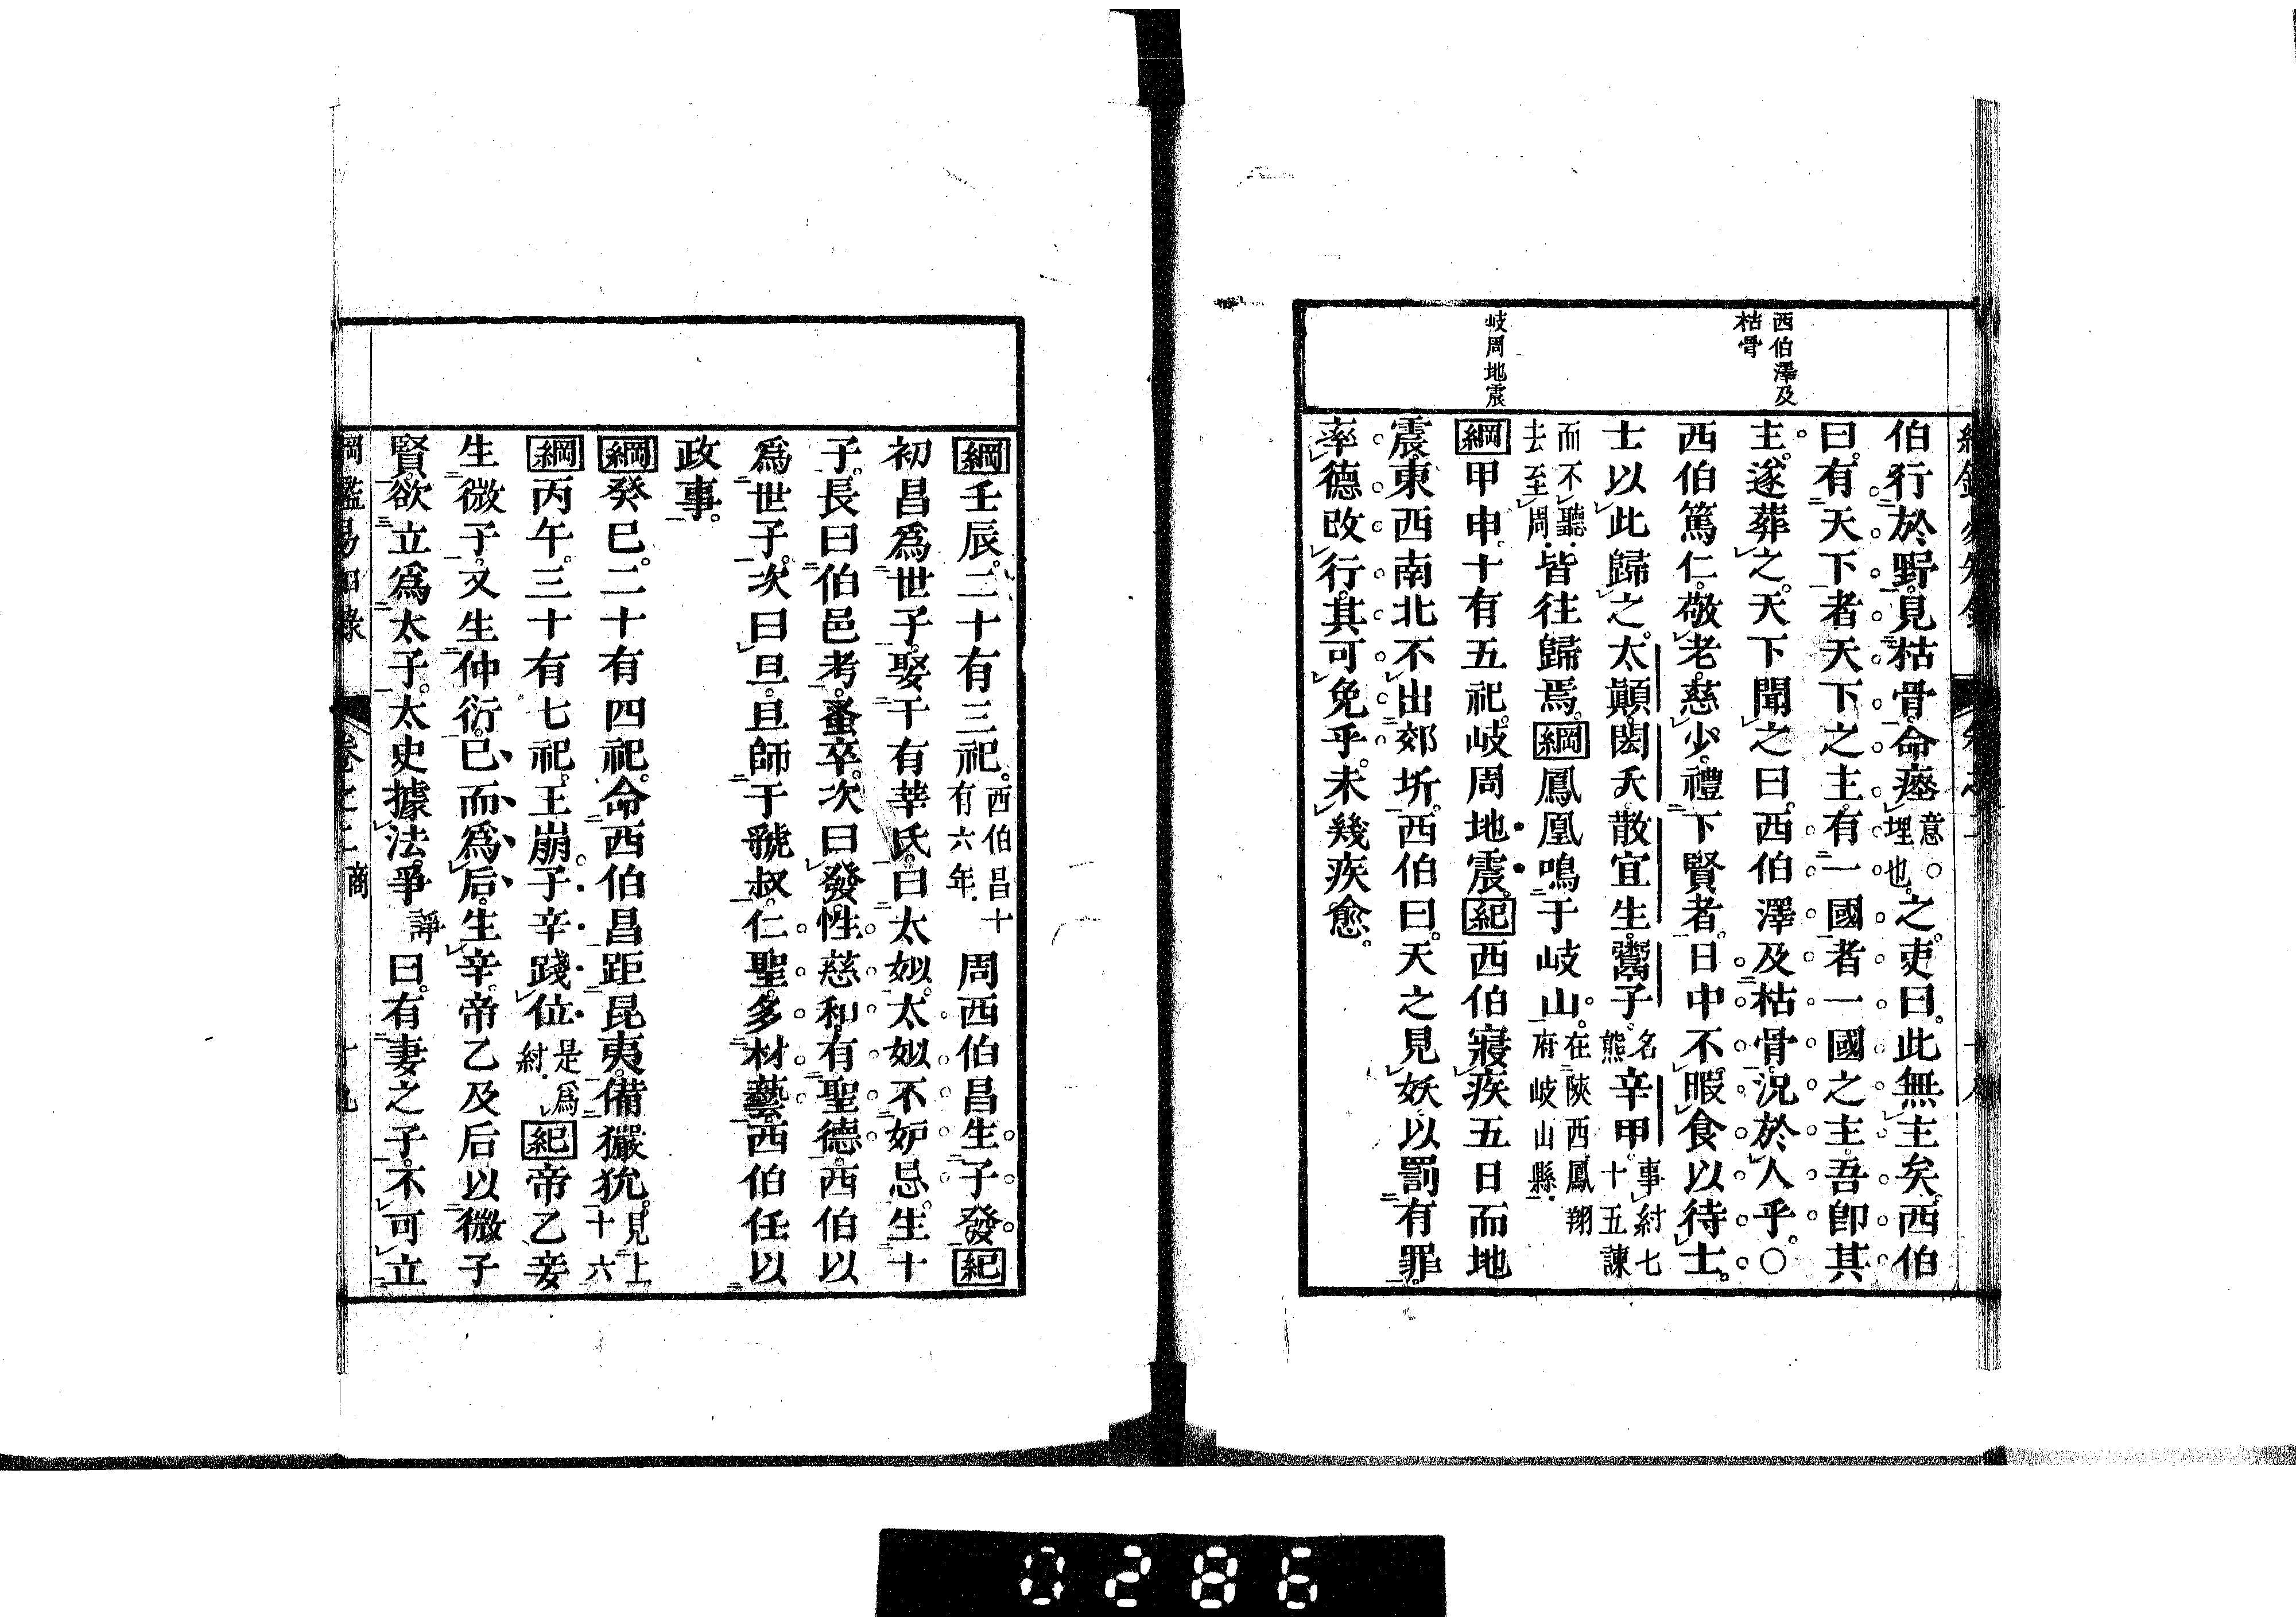 西伯澤及
枯骨
岐周地震
伯行於野見枯骨命瘞意○埋也之吏曰此無主矣西伯
曰有天下者天下之主有一國者一國之主吾卽其
主遂葬之天下聞之曰西伯澤及枯骨況於人乎○
西伯篤仁敬老慈少禮下賢者日中不暇食以待士
士以此歸之太顚閎夭散宜生鬻子名熊辛甲事紂七十五諫
而不聽去至周皆往歸焉綱鳳凰鳴于岐山在陝西鳳翔府岐山縣
綱甲申十有五祀岐周地震紀西伯寢疾五日而地
震東西南北不出郊圻西伯曰天之見妖以罰有罪
率德改行其可免乎未幾疾愈
綱壬辰二十有三祀西伯昌十有六年周西伯昌生子發紀
初昌爲世子娶于有莘氏曰太姒太姒不妒忌生十
子長曰伯邑考蚤卒次曰發性慈和有聖德西伯以
爲世子次曰旦旦師于虢叔仁聖多材藝西伯任以
政事
綱癸巳二十有四祀命西伯昌距昆夷備玁狁見上十六
綱丙午三十有七祀王崩子辛踐位是爲紂紀帝乙妾
生微子又生仲衍已而爲后生辛帝乙及后以微子
賢欲立爲太子太史據法爭諍曰有妻之子不可立
綱鑑易知錄 卷之二 商 十九
0286